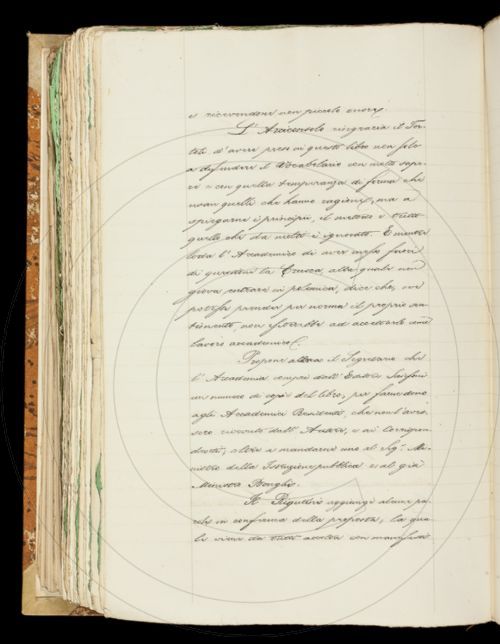 e ricevendone non piccolo onore.
L'Arciconsolo ringrazia il Tor-
toli d'avere preso in questo libro non solo
a difendere il Vocabolario con molto sape-
re e con quella temperanza di forma che
usan quelli che hanno ragione, ma a
spiegarne i principii, il metodo e tutto
quello che da molti è ignorato. E mentre
loda l'Accademico di aver messo fuori
di questione la Crusca, alla quale non
giova entrare in polemica, dice che, ove
potesse prender per norma il proprio sen-
timento non esiterebbe ad accettarlo come
lavoro accademico.
Propone allora il Segretario che
l'Accademia compri dall'Editore Sansoni
un numero di copie del libro, per farne dono
agli Accademici Residenti, che non l'aves-
sero ricevuto dall'Autore, e ai Corrispon-
denti, oltre a mandarne uno al Sig. Mi-
nistro della Istruzione pubblica e al già
Ministro Bonghi.
Il Rigutini aggiunge alcune pa-
role in conferma della proposta, la qua-
le viene da tutti accolta con manifesti